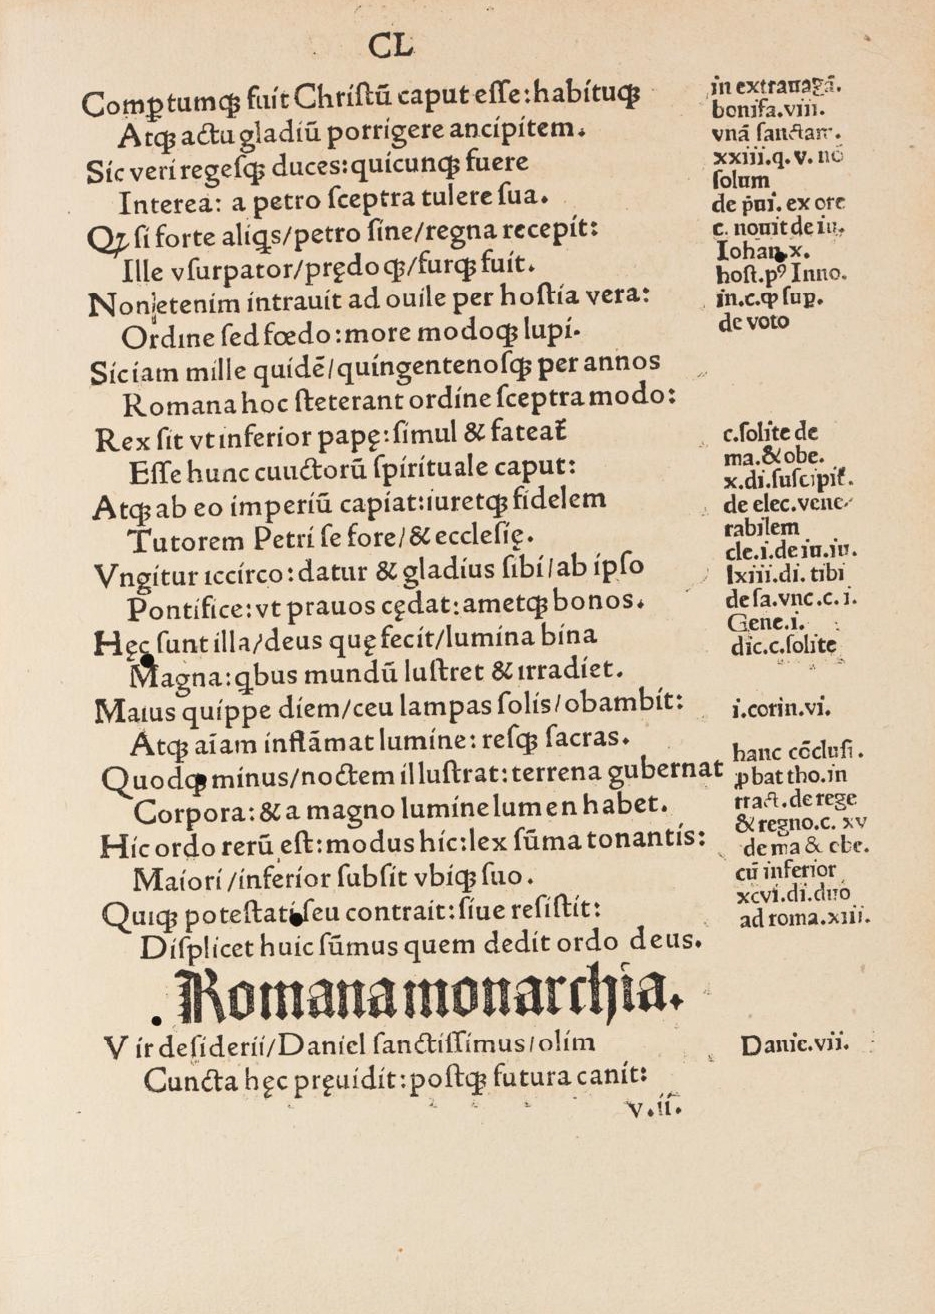 CL
Comꝑtumqꝫ fuit Chriſtū caput eſſe:habituqꝫ
Atqꝫ actu gladiū porrigere ancipitem.
Sic veri regeſqꝫ duces:quicunqꝫ fuere
Interea: a petro ſceptra tulere ſua.
Qꝫ ſi forte aliqͥs/petro ſine/regna recepit:
Ille vſurpator/prędoqꝫ/furqꝫ fuit.
Non etenim intrauit ad ouile per hoſtia vera:
Ordine ſed fœdo:more modoqꝫ lupi.
Sic iam mille quidē/quingentenoſqꝫ per annos
Romana hoc ſteterant ordine ſceptra modo:
Rex ſit vt inferior papę:ſimul & fateat᷑
Eſſe hunc cuuctorū ſpirituale caput:
Atqꝫ ab eo imperiū capiat:iuretqꝫ fidelem
Tutorem Petri ſe fore/& eccleſię.
Vngitur iccirco:datur & gladius ſibi/ab ipſo
Pontifice:vt prauos cędat:ametqꝫ bonos.
Hęc ſunt illa/deus quę fecit/lumina bina
Magna:qͥbus mundū luſtret & irradiet.
Maius quippe diem/ceu lampas ſolis/obambit:
Atqꝫ aīam inflāmat lumine:reſqꝫ ſacras.
Quodqꝫ minus/noctem illuſtrat:terrena gubernat
Corpora:& a magno lumine lumen habet.
Hic ordo rerū eſt:modus hic:lex ſūma tonantis:
Maiori/inferior ſubſit vbiqꝫ ſuo.
Quiqꝫ poteſtati ſeu contrait:ſiue reſiſtit:
Diſplicet huic ſūmus quem dedit ordo deus.
Romana monarchia.
Vir deſiderii/Daniel ſanctiſſimus/olim
Cuncta hęc pręuidit:poſtqꝫ futura canit:
v.ii.
in extrauagā.
bonifa.viii.
vnā ſanctam.
xxiii.q.v. nō
ſolum
de p̄ui. ex ore
c. nouit de iu.
Iohan.x.
hoſt.pꝰ Inno.
in.c.ꝙ ſuꝑ.
de voto
c.ſolite de
ma.&obe.
x.di.ſuſcipit᷑.
de elec.vene-
rabilem
cle.i.de iu.iu.
lxiii.di. tibi
de ſa.vnc.c.i.
Gene.i.
dic.c.ſolite
i.corin.vi.
hanc cōcluſi.
ꝓbat tho.in
tract.de rege
& regno.c. xv
de ma & obe.
cū inferior
xcvi.di.duo
ad roma.xiii.
Danie.vii.